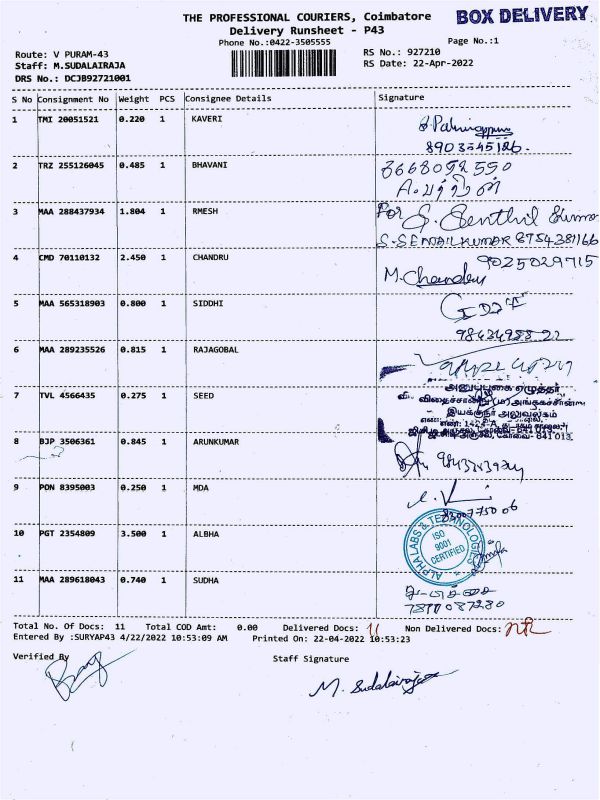 THE PROFESSIONAL COURIERS, Coimbatore
BOX DELIVERY
Delivery Runsheet - P43
Phone No.:0422-3505555
Page No.:1
Route: V PURAM-43
RS No.: 927210
Staff: M.SUDALAIRAJA
RS Date: 22-Apr-2022
DRS No.: DCJB92721001
S No Consignment No Weight PCS Consignee Details Signature
1 TMI 20051521 0.220 1 KAVERI
8903545126.
2 TRZ 255126045 0.485 1 BHAVANI
3 MAA 288437934 1.804 1 RMESH For S. Senthil Kumar
8754381166
4 CMD 70110132 2.450 1 CHANDRU 9025029715
M.Chandru
5 MAA 565318903 0.800 1 SIDDHI
6 MAA 289235526 0.815 1 RAJAGOBAL
7 TVL 4566435 0.275 1 SEED
8 BJP 3506361 0.845 1 ARUNKUMAR
9 PON 8395003 0.250 1 MDA
10 PGT 2354809 3.500 1 ALBHA
ALPHA LABS & TECHNOLOGIES
ISO
9001
CERTIFIED
11 MAA 289618043 0.740 1 SUDHA
Total No. Of Docs: 11 Total COD Amt: 0.00 Delivered Docs: 11 Non Delivered Docs: NIL
Entered By :SURYAP43 4/22/2022 10:53:09 AM Printed On: 22-04-2022 10:53:23
Verified By
Staff Signature
M. Sudalairaja